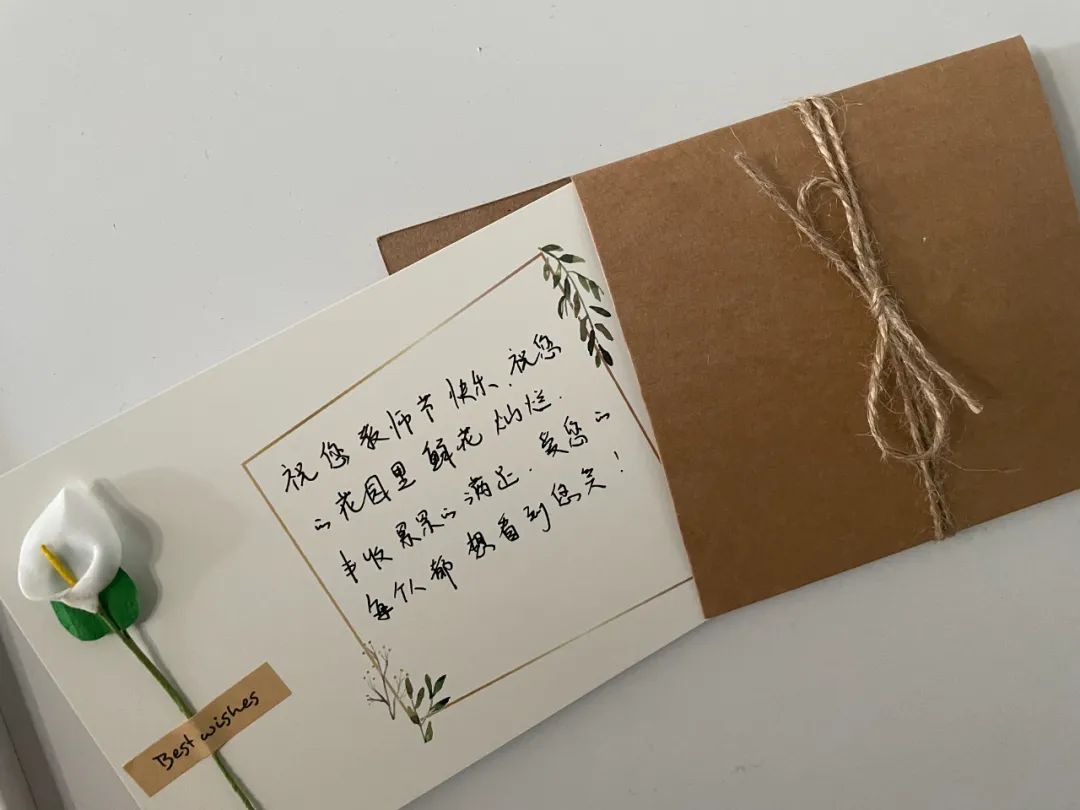 祝您教师节快乐.祝您
的花园里鲜花灿烂.
丰收累累的满足.爱您的
每个人都想看到您笑!
Best wishes